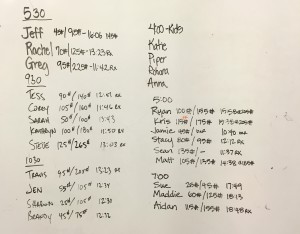 530
Jeff 45#/95# - 16:06
Rachel 70#/125# - 13:23 RX
Greg 95#/225# - 11:42 RX
930
Tess 90#/140# 12:47 RX
Corey 105#/160# 11:46 RX
Sarah 50#/100# 13:43
Kathryn 100#/180# 11:50 RX
Steve 125#/265# 13:03 RX
1030
Travis 95#/205# 13:23 RX
Jen 55#/105# 12:34
Shannon 20#/105# 12:30
Brandy 45#/76# 12:32
400-Kids
Katie
Piper
Rohana
Anna
5:00
Ryan 100#/155#
Kris 115#/175#
Jamie 10:40
Stacy 80#/95# 12:12
Sean 135#/- 11:37 RX
Matt 105#/135# 14:38
700
Sue 20#/95# 17:49
Maddie 60#/125# 18:13
Aidan 115#/155# 18:48 RX